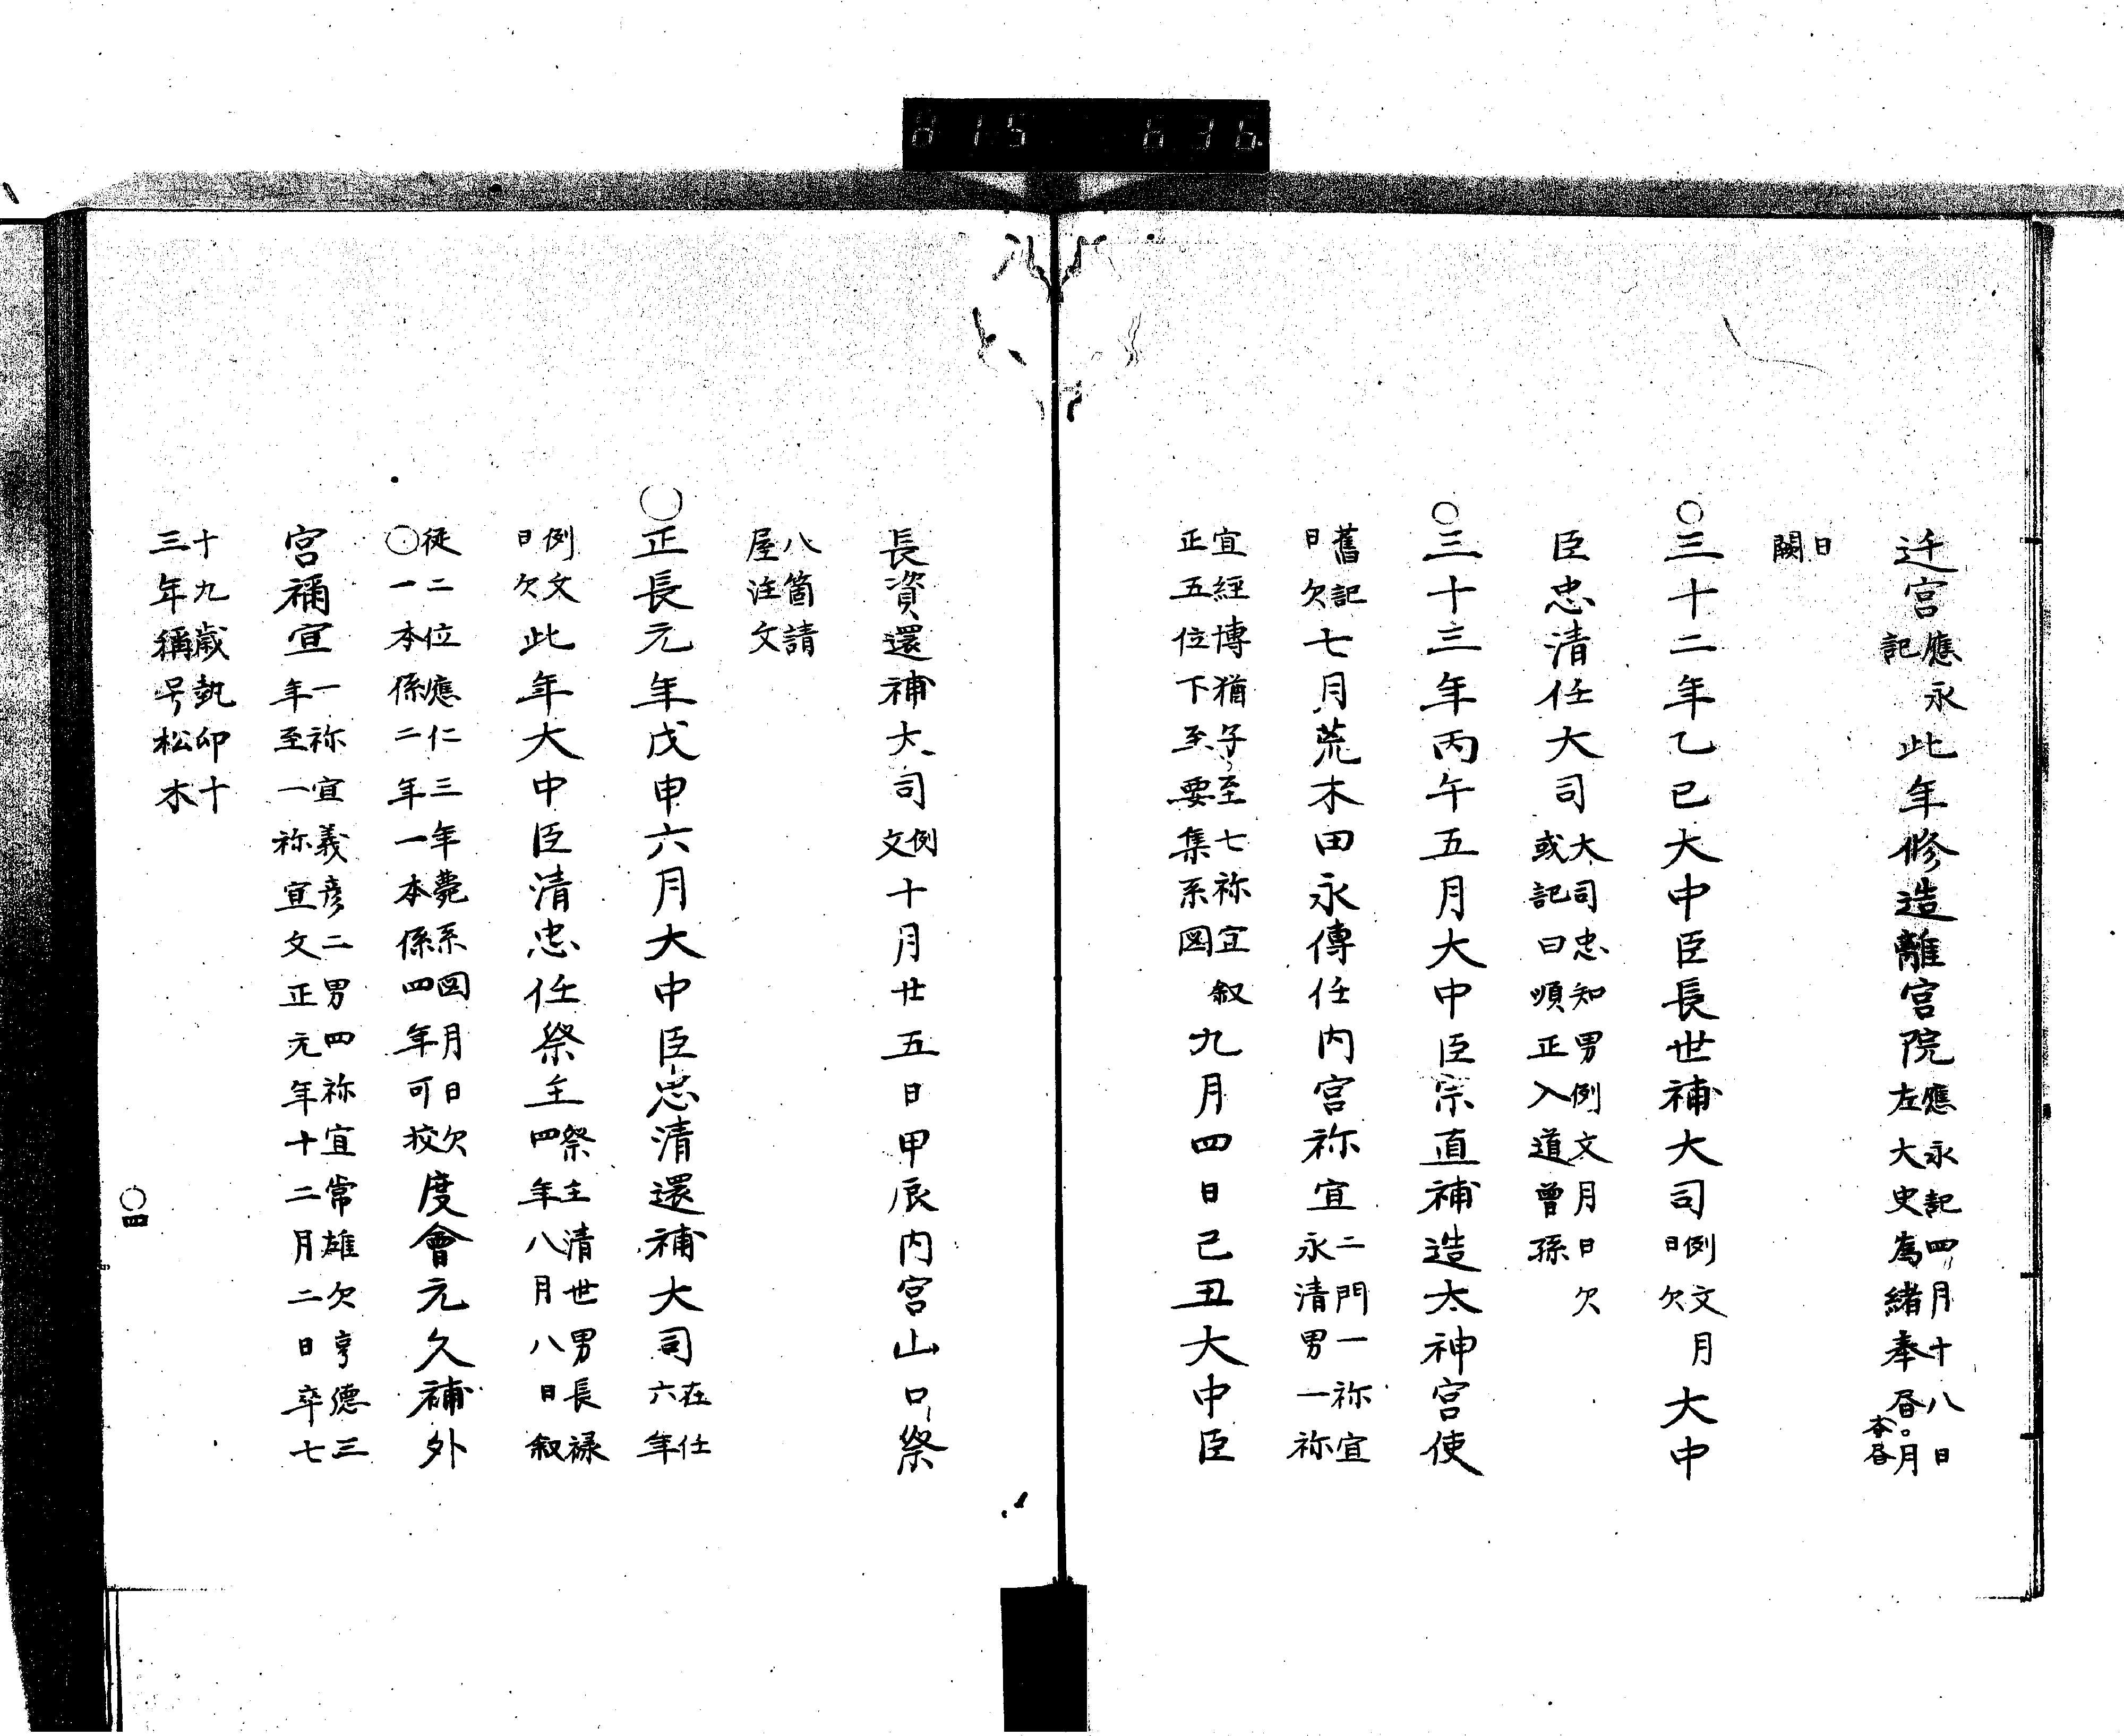 815 636
迁宮應永記此年修造離宮院應永記四月十八日左大史為緒奉昏。月本昏
日闕
○三十二年乙巳大中臣長世補大司例文日欠月大中
臣忠清任大司大司忠知男例文月日欠或記曰順正入道曾孫
○三十三年丙午五月大中臣宗直補造太神宮使
舊記日欠七月荒木田永傳任内宮祢宜二門一祢宜永清男一祢
宜經博猶子至七祢宜叙正五位下至要集系図九月四日己丑大中臣
長資還補大司例文十月廿五日甲辰内宮山口祭
八箇請屋注文
○正長元年戊申六月大中臣忠清還補大司在任六年
例文日欠此年大中臣清忠任祭主祭主清世男長禄四年八月八日叙
従二位應仁三年薨系図月日欠○一本係二年一本係四年可挍度會元久補外
宮禰宜一祢宜義彦二男四祢宜常雄欠亨德三年至一祢宜文正元年十二月二日卒七
十九歳執印十三年稱号松木
○四